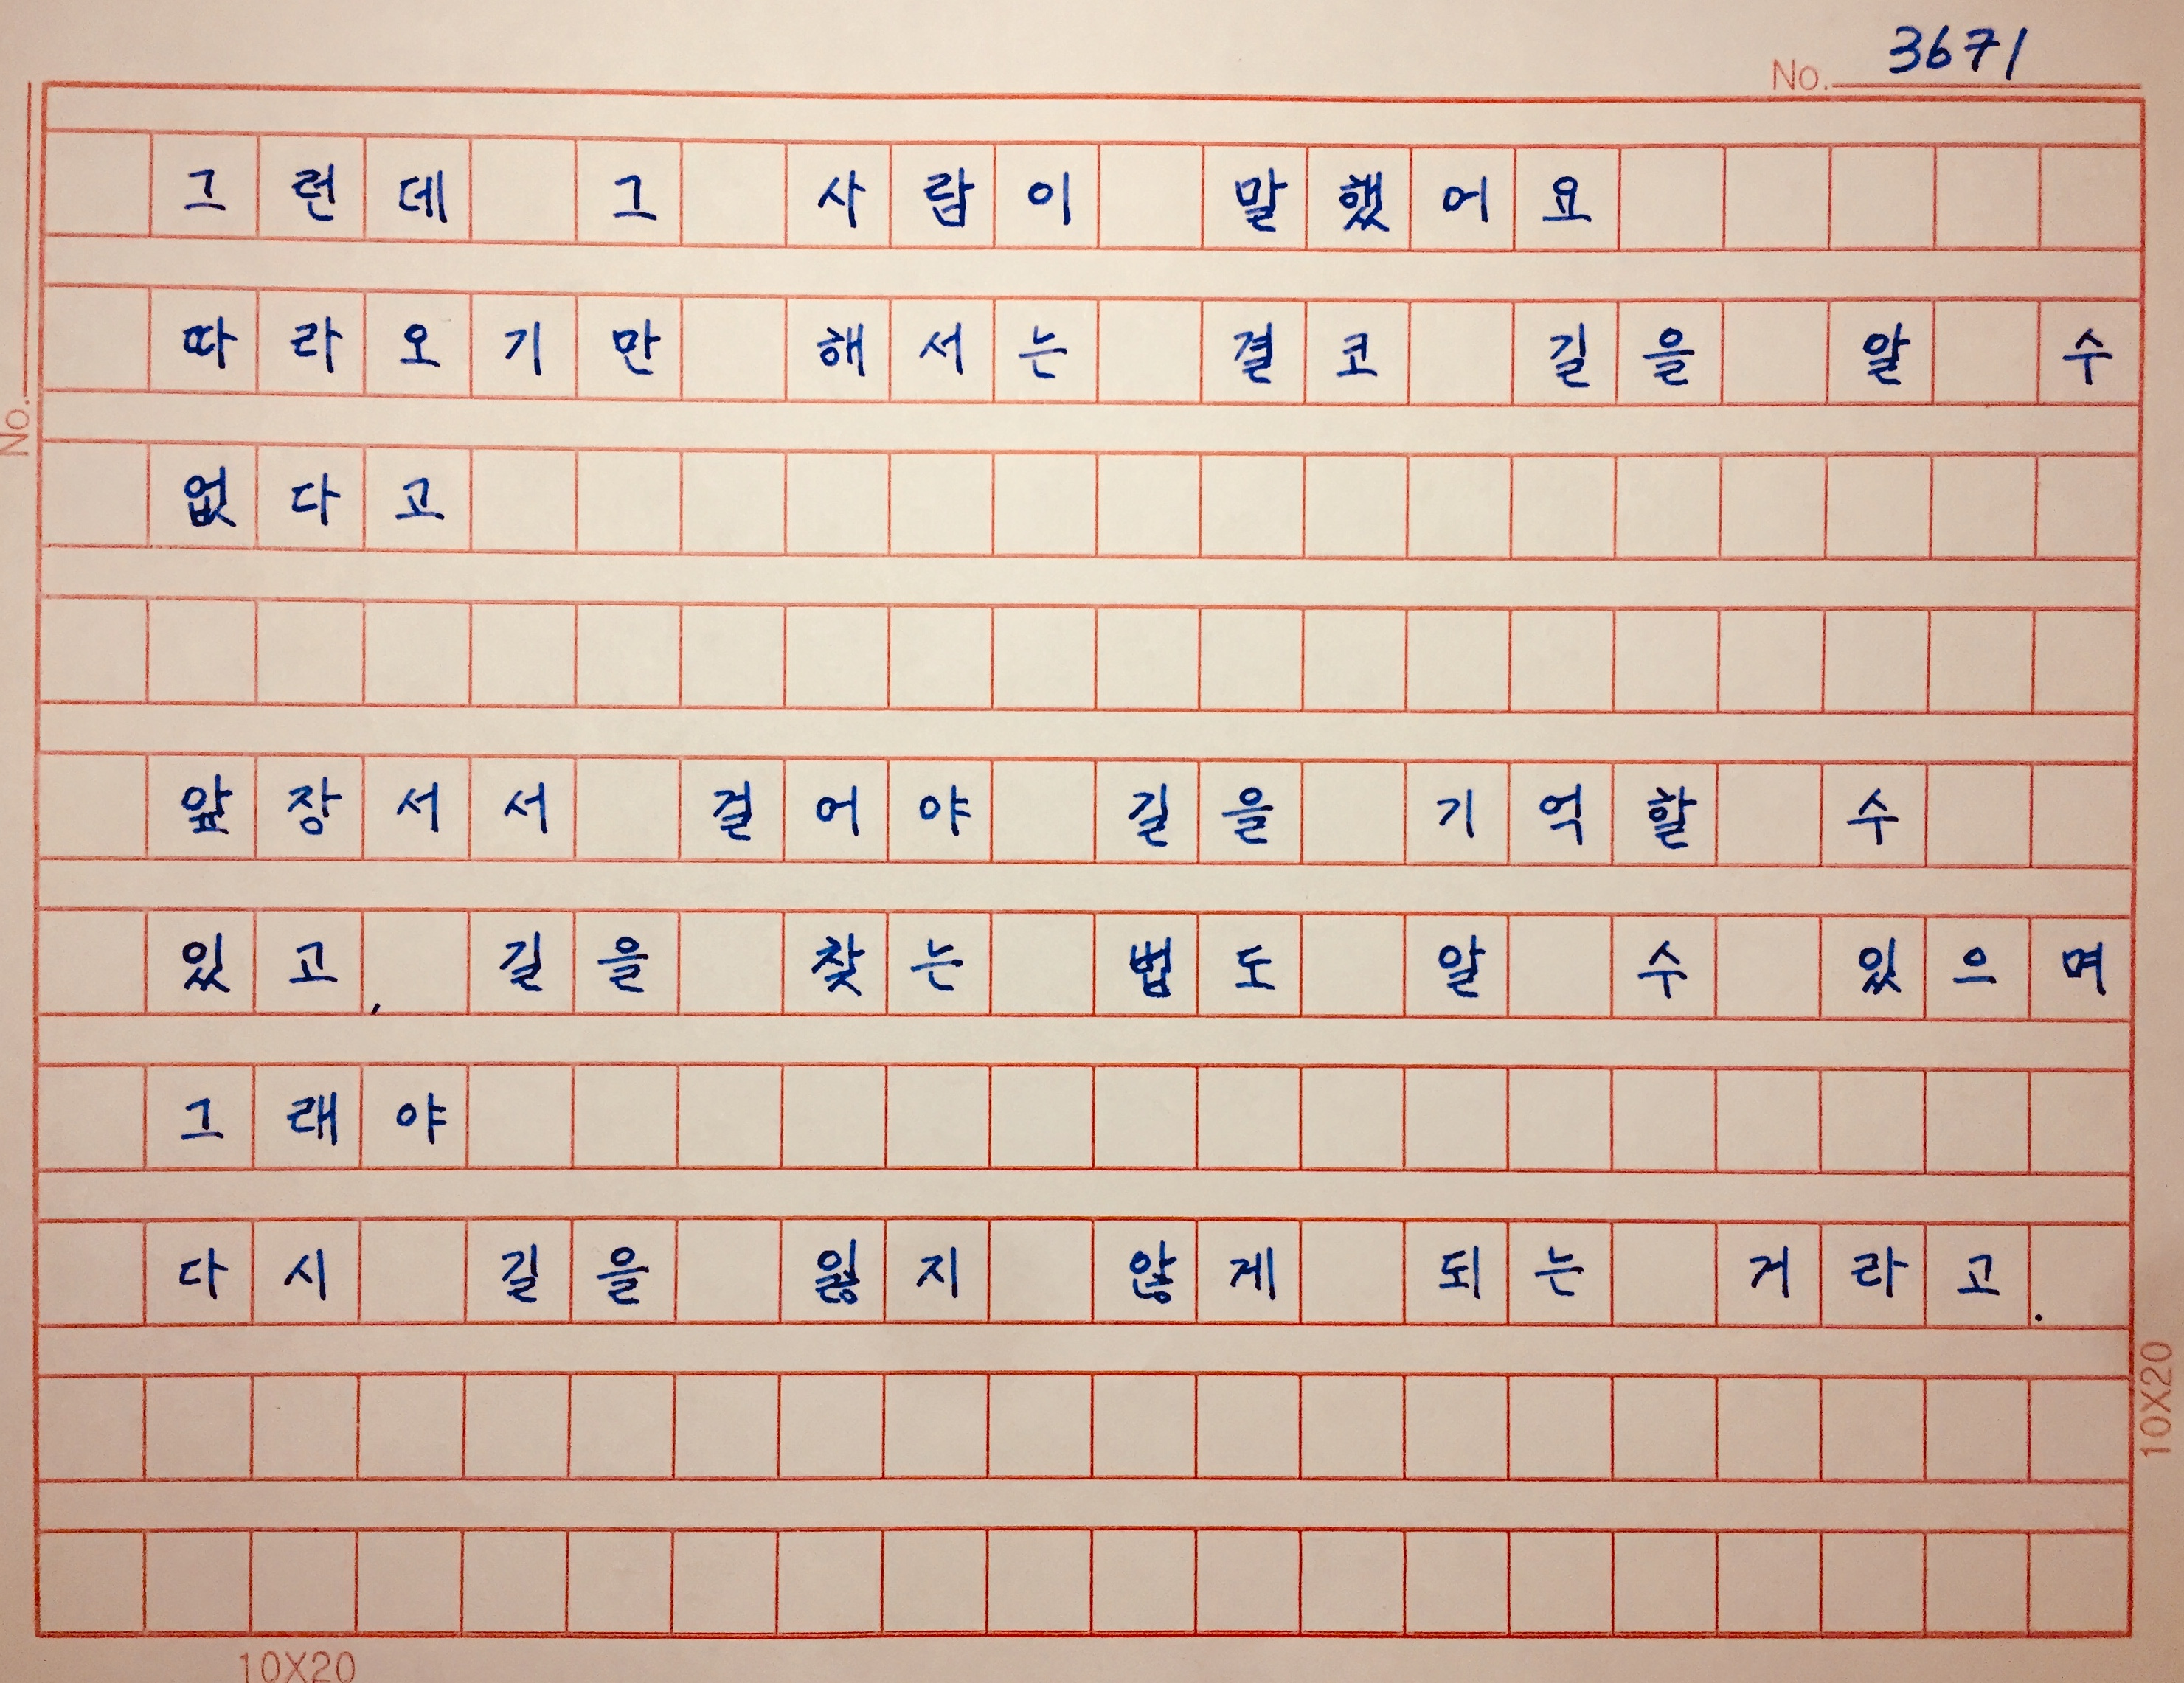 No. 3671
그런데 그 사람이 말했어요
따라오기만 해서는 결코 길을 알 수
없다고
No.
앞장서서 걸어야 길을 기억할 수
있고, 길을 찾는 법도 알 수 있으며
그래야
다시 길을 잃지 않게 되는 거라고.
10X20
10X20